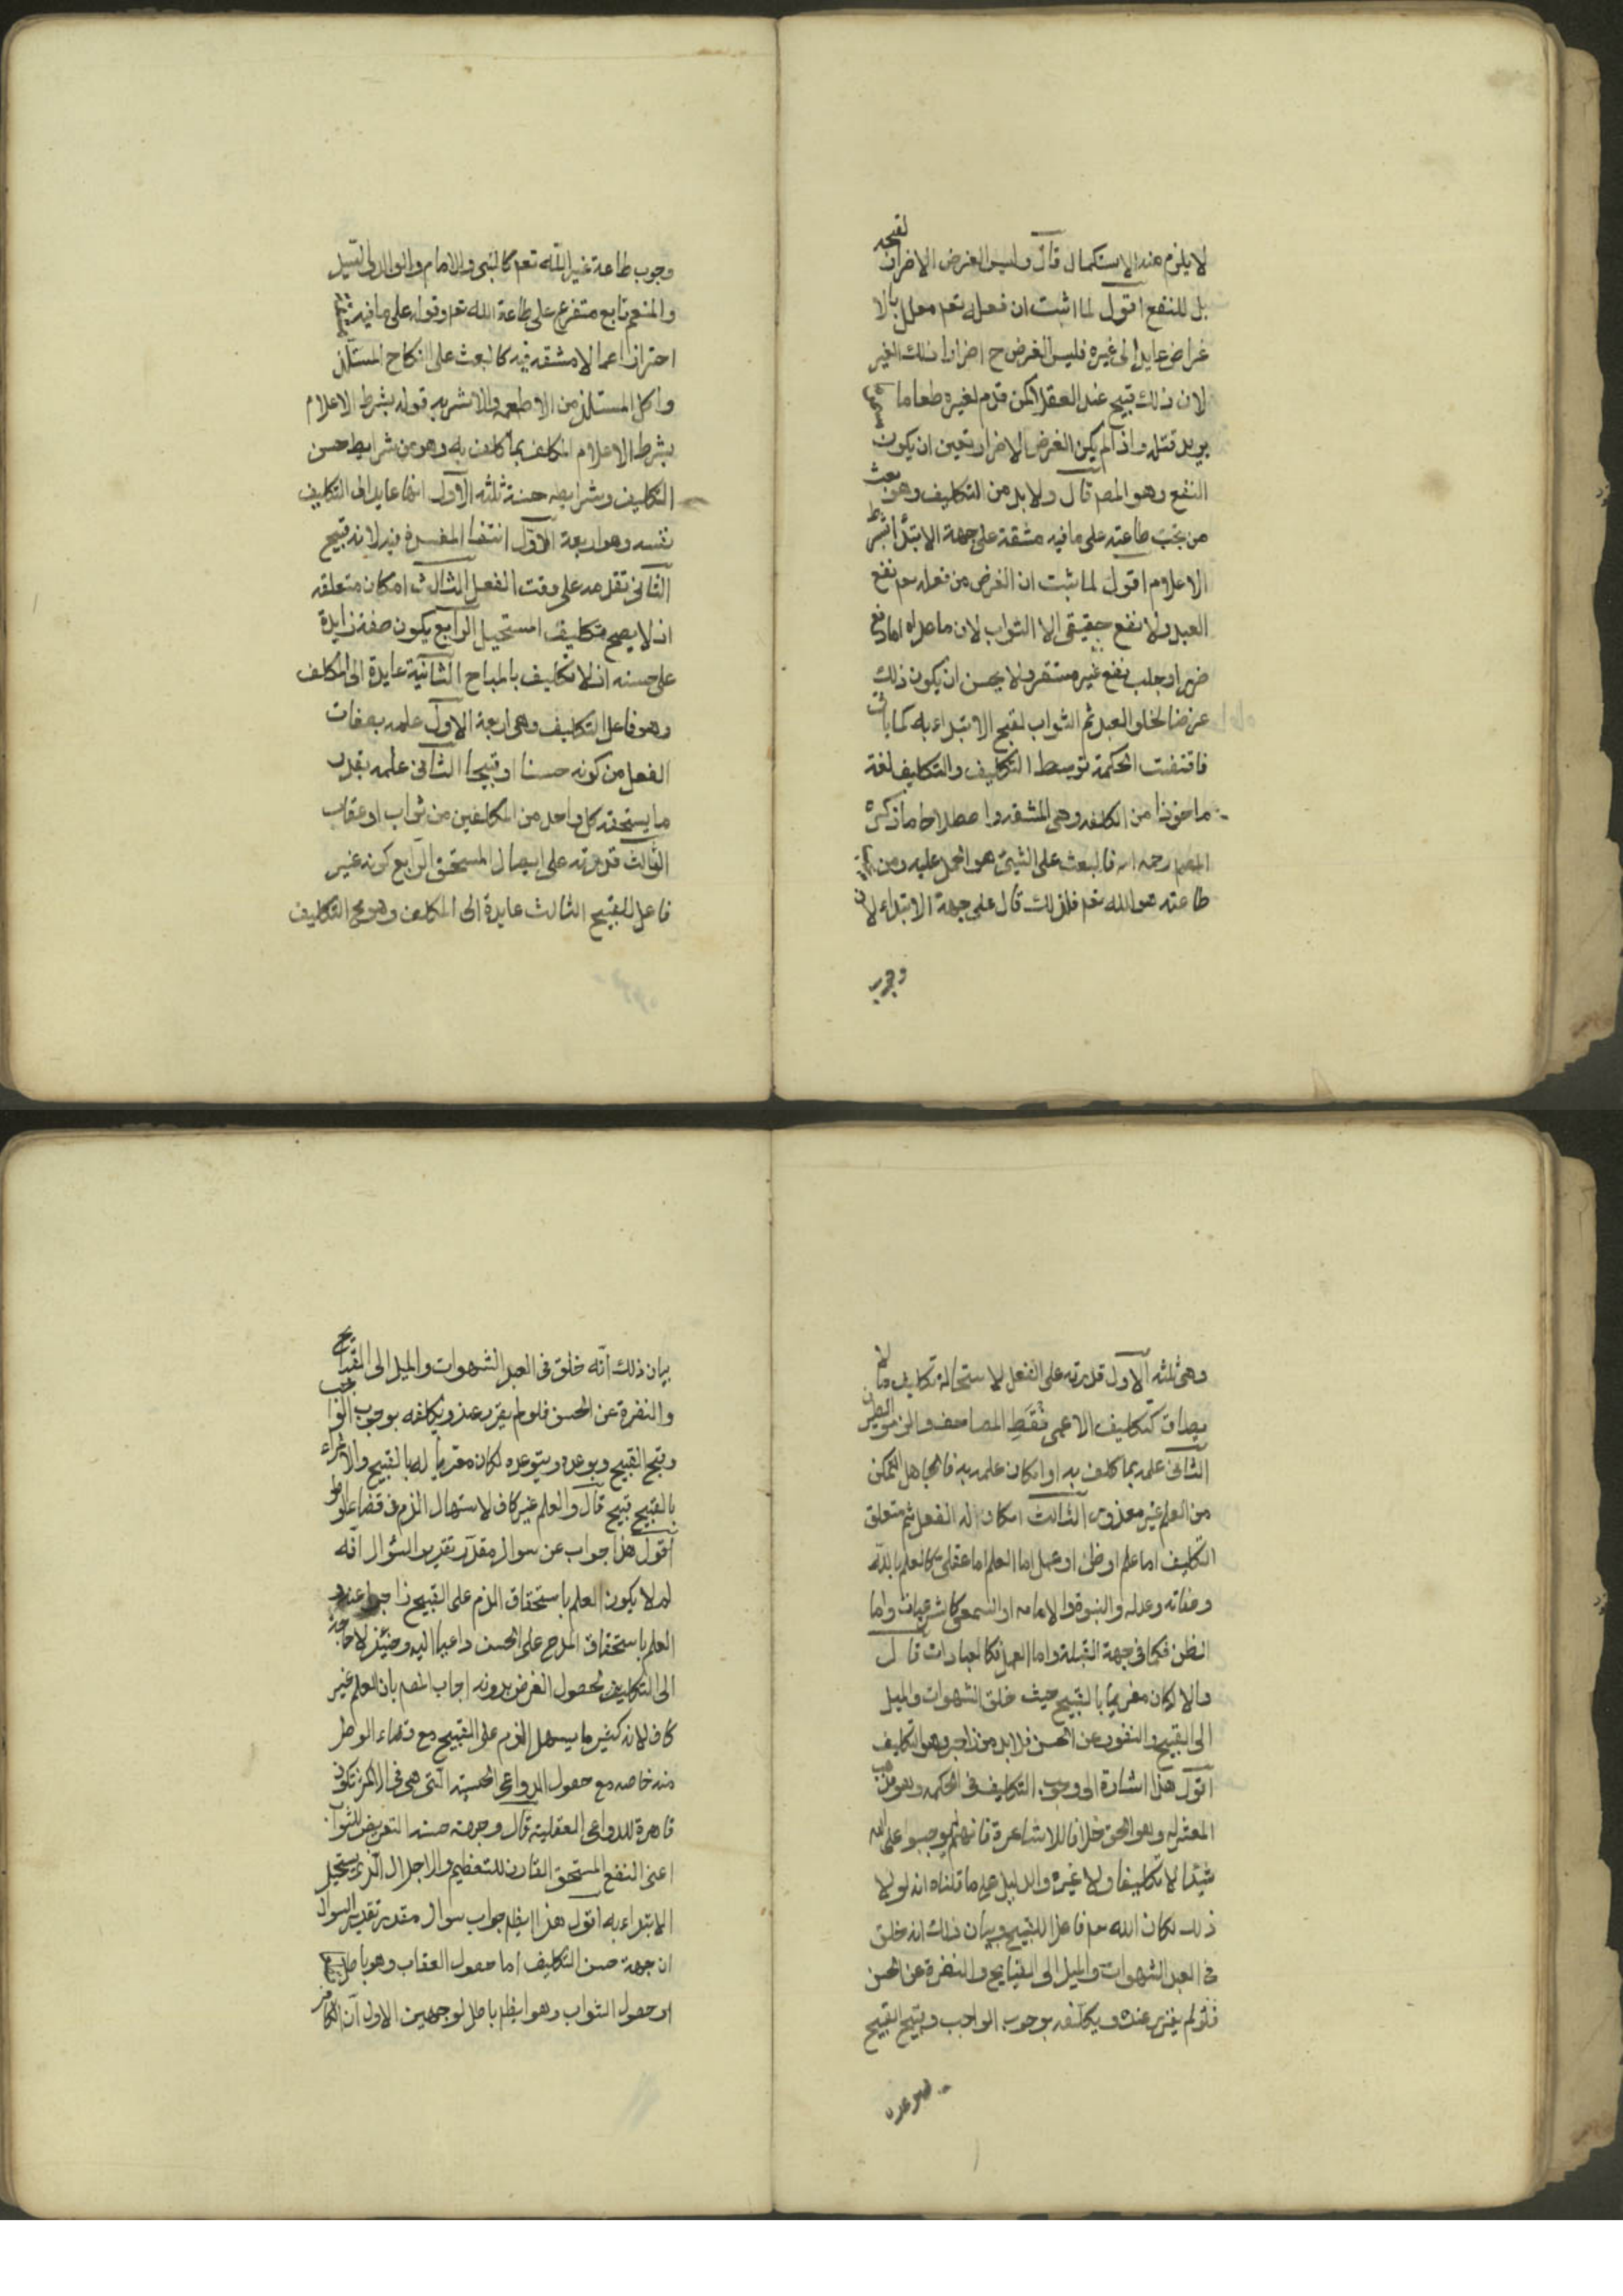 لا يلزم منه الاستكمال قال وليس الغرض الاضرار لقبحه
بل للنفع اقول لما اثبت ان فعله تعم معلل بالا
غراض عايد الى غيره فليس الغرض ح اضرار ذلك الغير
لان ذلك قبيح عند العقلا كمن قدم لغيره طعاما مسموما
يريد قتله واذا لم يكن الغرض الاضرار تعين ان يكون
النفع وهو المط قال ولا بد من التكليف وهو بعث
من يجب طاعته على ما فيه مشقة على جهة الابتدا بشرط
الاعلام اقول لما ثبت ان الغرض من فعله تعم نفع
العبد ولا نفع حقيقى الا الثواب لان ما عداه اما دفع
ضرر او جلب نفع غير مستقر ولا يحسن ان يكون ذلك
غرضا لخلق العبد ثم الثواب لقبح الابتداء به كما ياتى
فاقتضت الحكمة توسط التكليف والتكليف لغة
ماخوذا من الكلفه وهى المشقه واصطلاحا ما ذكره
المص رحمه الله فالبعث على الشئ هو الحمل عليه ومن يجب
طاعته هو الله تعم فلذلك قال على جهة الابتداء لان
وجوب
وجوب طاعة غير الله تعم كالنبى والامام والوالد والسيد
والمنعم تابع متفرع على طاعة الله تعم وقوله على ما فيه مشقة
احترازا عما لا مشقه فيه كالبعث على النكاح المستلذ
واكل المستلذ من الاطعمه والاشربه قوله بشرط الاعلام
بشرط الاعلام المكلف بما كلف به وهو من شرايط حسن
التكليف وشرايط حسنه ثلثه الاول انها عايد الى التكليف
نفسه وهو اربعة الاول انتفا المفسدة فيه لانه قبيح
الثانى تقدمه على وقت الفعل الثالث امكان متعلقه
اذ لا يصح تكليف المستحيل الرابع يكون صفة زايدة
على حسنه اذ لا تكليف بالمباح الثانية عايدة الى المكلف
وهو فاعل التكليف وهى اربعة الاول علمه بصفات
الفعل من كونه حسنا او قبيحا الثانى علمه بقدر
ما يستحقه كل واحد من المكلفين من ثواب او عقاب
الثالث قدرته على ايصال المستحق الرابع كونه غير
فاعل للقبيح الثالث عايدة الى المكلف وهو محل التكليف
وهى ثلثه الاول قدرته على الفعل لاستحالة تكليف ما لا
يطاق كتكليف الاعمى نقط المصاحف والزمن الطيران
الثانى علمه بما كلف به او امكان علمه به فالجاهل المتمكن
من العلم غير معذور الثالث امكان اله الفعل ثم متعلق
التكليف اما علم او ظن او عمل اما العلم اما عقلى كالعلم بالله
وصفاته وعدله والنبوة والامامه او السمعى كالشرعيات واما
الظن فكما فى جهة القبلة واما العمل فكالعبادات قال
والا لكان مغريا بالقبيح حيث خلق الشهوات والميل
الى القبيح والنفور عن الحسن فلا بد من زاجر وهو التكليف
اقول هذا اشارة الى وجوب التكليف فى الحكمه وهو مذهب
المعتزله وهو الحق خلافا للاشاعرة فانهم لم يوجبوا على الله
شيئا لا تكليفا ولا غيره والدليل على ما قلناه انه لولا
ذلك لكان الله تعم فاعلا للقبيح وبيان ذلك انه خلق
فى العبد الشهوات والميل الى القبايح والنفرة عن الحسن
فلو لم يقرر عنده ويكلفه بوجوب الواجب وقبح القبيح
ويوعده
بيان ذلك انه خلق فى العبد الشهوات والميل الى القبايح
والنفرة عن الحسن فلو لم يقرر عنده ويكلفه بوجوب الواجب
وقبح القبيح ويوعده ويتوعده لكان مغريا له بالقبيح والاغراء
بالقبيح قبيح قال والعلم غير كاف لاستسهال الذم فى قضاء الوطر
اقول هذا جواب عن سوال مقدر تقدير السؤال انه
لم لا يكون العلم باستحقاق الذم على القبيح زاجرا عنه و
العلم باستحقاق المدح على الحسن داعيا اليه وحينئذ لا حاجة
الى التكليف لحصول الغرض بدونه اجاب المص بان العلم غير
كاف لانه كثير ما يسهل الذم على القبيح مع قضاء الوطر
منه خاصه مع حصول الدواعى الحسيه التى هى فى الاكثر تكون
قاهرة للدواعى العقليه قال وجهة حسنه التعريض للثواب
اعنى النفع المستحق المقارن للتعظيم والاجلال الذى يستحيل
الابتداء به اقول هذا ايضا جواب سوال مقدر تقدير السوال
ان جهة حسن التكليف اما حصول العقاب وهو باطل
او حصول الثواب وهو ايضا باطل لوجهين الاول ان الكافر